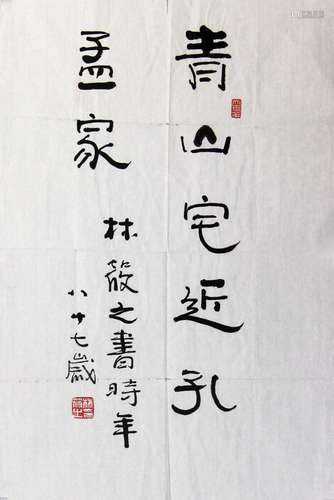 青山宅近孔
孟家
林筱之書時年
八十七歲